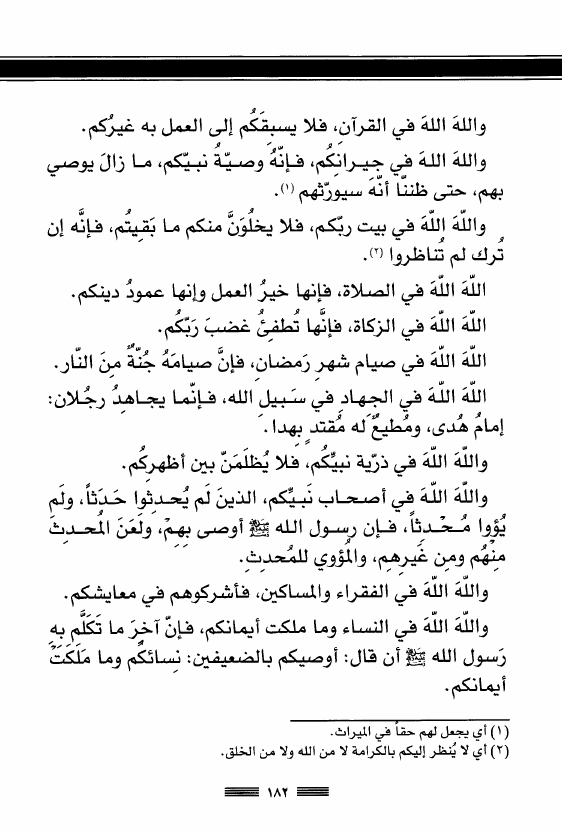 واللهَ اللهَ في القرآنِ، فلا يسبِقَكُم إلى العمل به غيرُكم.
واللهَ اللهَ في جيرانِكُم، فإنّهُ وصيّةُ نبيّكم، ما زالَ يوصي
بهم، حتى ظننّا أنّهَ سيورّثهم (١).
واللّهَ اللّهَ في بيت ربّكم، فلا يخلُوَنَّ منكم ما بَقِيتُم، فإنَّه إن
تُرك لم تُناظروا (٢).
اللّهَ اللّهَ في الصلاة، فإنها خيرُ العمل وإنها عمودُ دينكم.
اللّهَ اللّهَ في الزكاة، فإنَّها تُطفِئُ غضبَ رَبّكُم.
اللّهَ اللّهَ في صيام شهرِ رَمضان، فإنَّ صيامَهُ جُنّةٌ مِنَ النّار.
اللّهَ اللّهَ في الجهادِ في سَبيلِ الله، فإنّما يجاهِدُ رجُلان:
إمامُ هُدى، ومُطيعٌ له مُقتدٍ بِهدا.
واللّهَ اللّهَ في ذرّية نبيِّكُم، فلا يُظلَمَنّ بين أظهرِكُم.
واللّهَ اللّهَ في أصحاب نَبيِّكم، الذينَ لَم يُحدِثوا حَدَثاً، ولَم
يُؤوا مُحْدثاً، فإن رسول الله ﷺ أوصى بِهِمْ، ولَعَنَ المُحدِثَ
مِنْهُم ومِن غَيرِهِم، والمُؤوي للمُحدِثِ.
واللّهَ اللّهَ في الفقراء والمساكين، فأشركوهم في معايشكم.
واللّهَ اللّهَ في النساء وما ملكت أيمانكم، فإنّ آخِرَ ما تَكَلَّم بِهِ
رَسول الله ﷺ أن قال: أوصيكم بالضعيفين: نِسائكُم وما مَلَكَتْ
أيمانكم.
(١) أي يجعل لهم حقاً في الميراث.
(٢) أي لا يُنظر إليكم بالكرامة لا من الله ولا من الخلق.
١٨٢